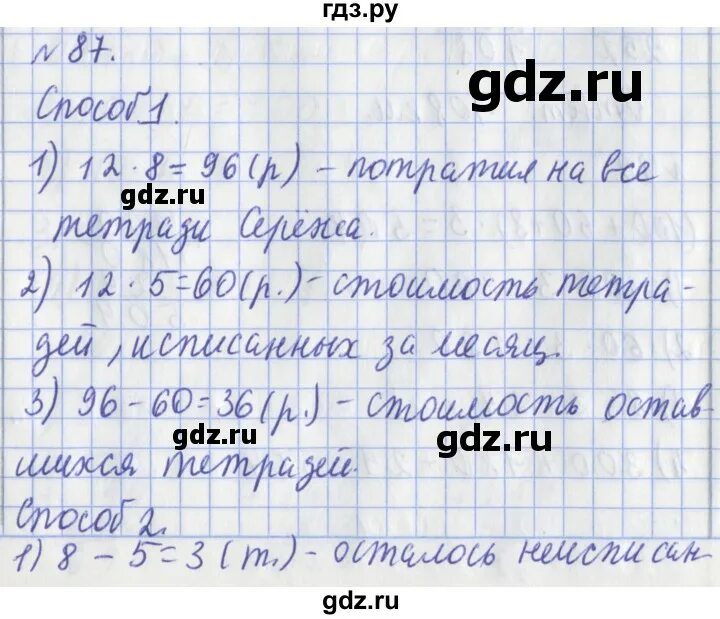 гдз.ру
№ 87.
gdz.ru
Способ 1.
1) 12 · 8 = 96 (р) – потратил на все
gdz.ru
тетради Сережа.
2) 12 · 5 = 60 (р.) – стоимость тетра-
дей, исписанных за месяц.
3) 96 – 60 = 36 (р.) – стоимость остав
gdz.ru
gdz.ru
шихся тетрадей.
Способ 2.
1) 8 – 5 = 3 (т.) – осталось неисписан-
gdz.ru